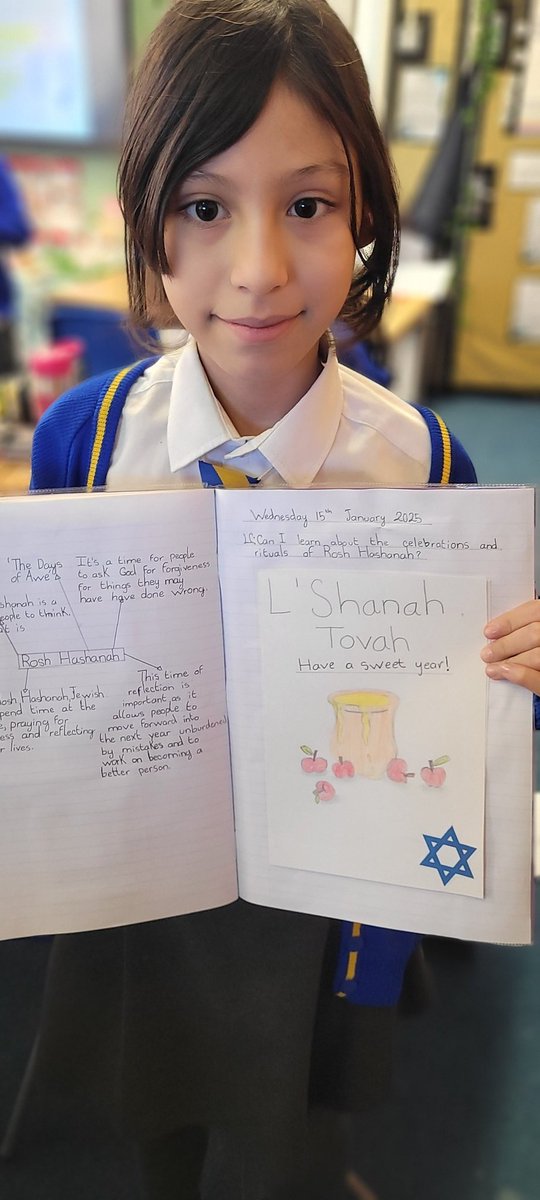 'The Days
of Awe'
It's a time for people
to ask God for forgiveness
for things they may
have have done wrong.
is a
to think.
is
Rosh Hashanah
Hashanah, Jewish
time at the
praying for
and reflecting
lives.
This time of
reflection is
important as it
allows people to
move forward into
the next year unburdened
by mistakes and to
work on becoming a
better person.
Wednesday 15th January 2025
LC: Can I learn about the celebrations and
rituals of Rosh Hashanah?
L'Shanah
Tovah
Have a sweet year!